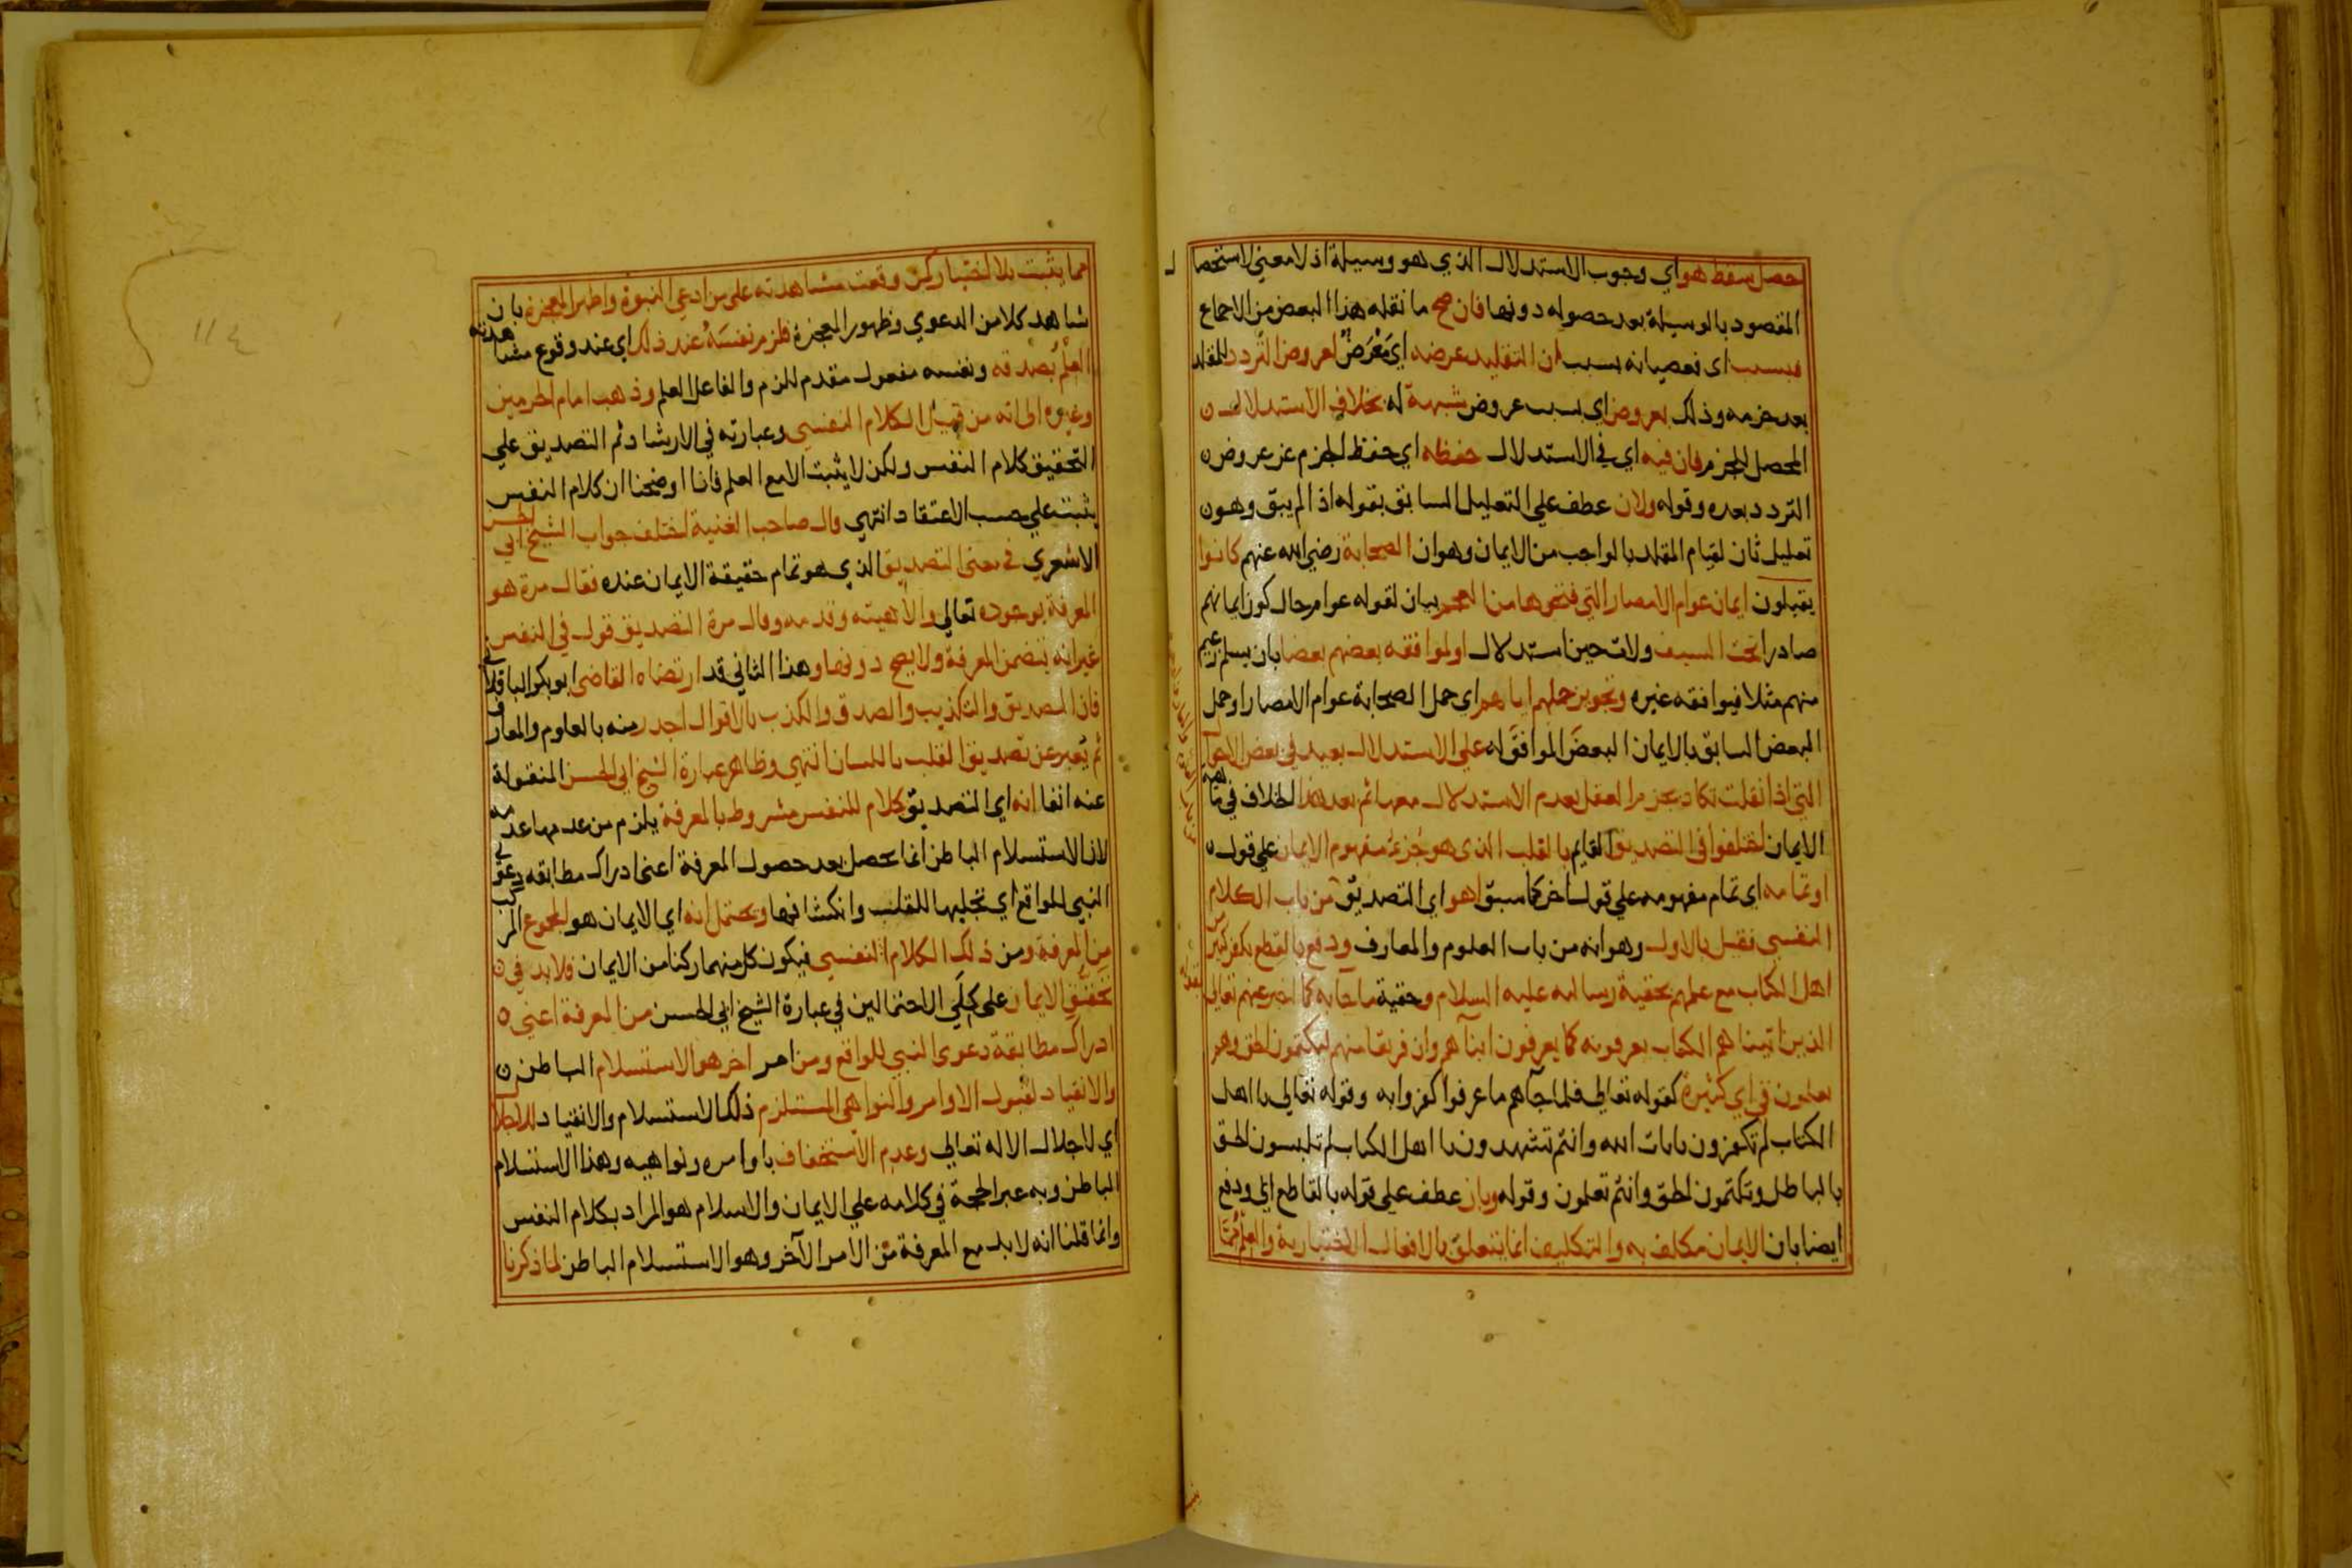 حصل سقط هو اي وجوب الاستدلال الذي هو وسيلة اذ لا معني لاستحصال
المقصود بالوسيلة بعد حصوله دونها فان صح ما نقله هذا البعض من الاجماع
فبسبب اى فعصيانه بسبب ان التقليد عرضه اي مَعْرَضٌ لعروض التردد للمقلد
بعد جزمه وذلك بعروض اي بسبب عروض شبهة له بخلاف الاستدلال
المحصل للجزم فان فيه اي في الاستدلال حفظه اي حفظ الجزم عن عروض
التردد بعده وقوله ولان عطف علي التعليل السابق بقوله اذ لم يبق وهو
تعليل ثان لقيام المقلد بالواجب من الايمان وهو ان الصحابة رضي الله عنهم كانوا
يقبلون ايمان عوام الامصار التي فتحوها من العجم بيان لقوله عوام حال كون ايمانهم
صادرا تحت السيف ولات حين استدلال او لموافقه بعضهم بعضا بان يسلم زعيم
منهم مثلا فيوافقه غيره وتجويز حملهم اياهم اي حمل الصحابة عوام الامصار او حمل
البعض السابق بالايمان البعضَ الموافقَ له علي الاستدلال بعيد في بعض الاحوال
التي اذا نقلت تكاد يجزم العقل بعدم الاستدلال معها ثم بعد هذا الخلاف في
الايمان اختلفوا في التصديق القايم بالقلب الذي هو جُزءُ مفهوم الايمان علي قول
او تمامه اي تمام مفهومه علي قول اخر كما سبق اهو اي التصديق من باب الكلام
النفسي فقيل بالاول وهو انه من باب العلوم والمعارف ودفع بالقطع بكفر كثير من
اهل الكتاب مع علمهم بحقية رسالته عليه السلام وحقية ما جا به كما اخبر عنهم تعالي
الذين اتيناهم الكتاب يعرفونه كما يعرفون ابناهم وان فريقا منهم ليكتمون الحق وهم
يعلمون في اي كثيرة كقوله تعالي فلما جآهم ما عرفوا كفروا به وقوله تعالي يا اهل
الكتاب لم تكفرون بايات الله وانتم تشهدون يا اهل الكتاب لم تلبسون الحق
بالباطل وتكتمون الحق وانتم تعلمون وقوله وبان عطف علي قوله بالقاطع اي ودفع
ايضا بان الايمان مكلف به والتكليف انما يتعلق بالافعال الاختيارية والعلم
مما يثبت بلا اختيار كمن وقعت مشاهدته علي من ادعي النبوة واظهر المعجزة بان
شاهد كلا من الدعوي وظهور المعجزة فلزم نفسَهُ عند ذلك اي عند وقوع مشاهدته
العلمُ بصدقه ونفسه مفعول مقدم للزم والفاعل العلم وذهب امام الحرمين
وغيره الى انه من قبيل الكلام النفسي وعبارته في الارشاد ثم التصديق علي
التحقيق كلام النفس ولكن لا يثبت الا مع العلم فانا اوضحنا ان كلام النفس
يثبت علي حسب الاعتقاد انتهي وقال صاحب الغنية اختلف جواب الشيخ ابي الحسن
الاشعري في معنى التصديق الذي هو تمام حقيقة الايمان عنده فقال مرة هو
المعرفة بوجوده تعالي والاهيته وقدمه وقال مرة التصديق قول في النفس
غير انه يتضمن المعرفة ولا يصح دونها وهذا الثاني قد ارتضاه القاضي ابو بكر الباقلاني
فان التصديق والتكذيب والصدق والكذب بالاقوال اجدر منه بالعلوم والمعارف
ثم يعبر عن تصديق القلب باللسان انتهي وظاهر عبارة الشيخ ابي الحسن المنقولة
عنه انفا انه اي التصديق كلام للنفس مشروط بالمعرفة يلزم من عدمها عدمه
لان الاستسلام الباطن انما يحصل بعد حصول المعرفة اعني ادراك مطابقه دعوى
النبي للواقع اي تجليها للقلب وانكشافها ويحتمل انه اي الايمان هو المجموع المركب
من المعرفة ومن ذلك الكلام النفسي فيكون كل منهما ركنا من الايمان فلا بد في
تحقق الايمان على كلَي الاحتمالين في عبارة الشيخ ابي الحسن من المعرفة اعني
ادراك مطابقة دعوى النبي للواقع ومن امر اخر هو الاستسلام الباطن
والانقياد لقبول الاوامر والنواهي المستلزم ذلك الاستسلام والانقياد للاجلال
اي لاجلال الاله تعالي وعدم الاستخفاف باوامره ونواهيه وهذا الاستسلام
الباطن وبه عبر الحجة في كلامه علي الايمان والاسلام هو المراد بكلام النفس
وانما قلنا انه لا بد مع المعرفة من الامر الآخر وهو الاستسلام الباطن لما ذكرنا
١١٤